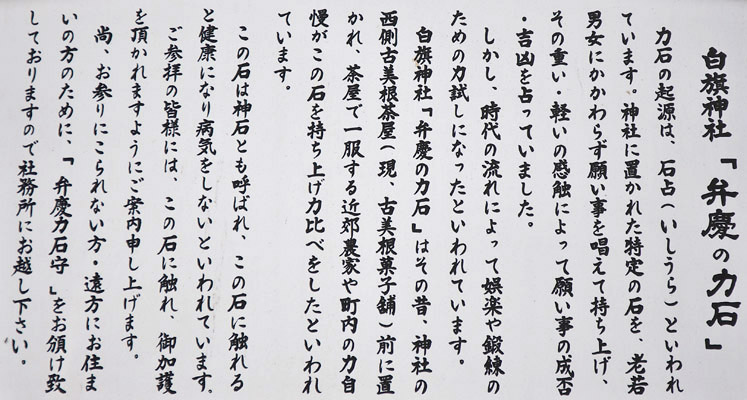 白旗神社「弁慶の力石」
力石の起源は、石占(いしうら)といわれ
ています。神社に置かれた特定の石を、老若
男女にかかわらず願い事を唱えて持ち上げ、
その重い・軽いの感触によって願い事の成否
・吉凶を占っていました。
しかし、時代の流れによって娯楽や鍛練の
ための力試しになったといわれています。
白旗神社「弁慶の力石」はその昔、神社の
西側古美根茶屋(現、古美根菓子舗)前に置
かれ、茶屋で一服する近郊農家や町内の力自
慢がこの石を持ち上げ力比べをしたといわれ
ています。
この石は神石とも呼ばれ、この石に触れる
と健康になり病気をしないといわれています。
ご参拝の皆様には、この石に触れ、御加護
を頂かれますようにご案内申し上げます。
尚、お参りにこられない方・遠方にお住ま
いの方のために、「弁慶力石守」をお頒け致
しておりますので社務所にお越し下さい。